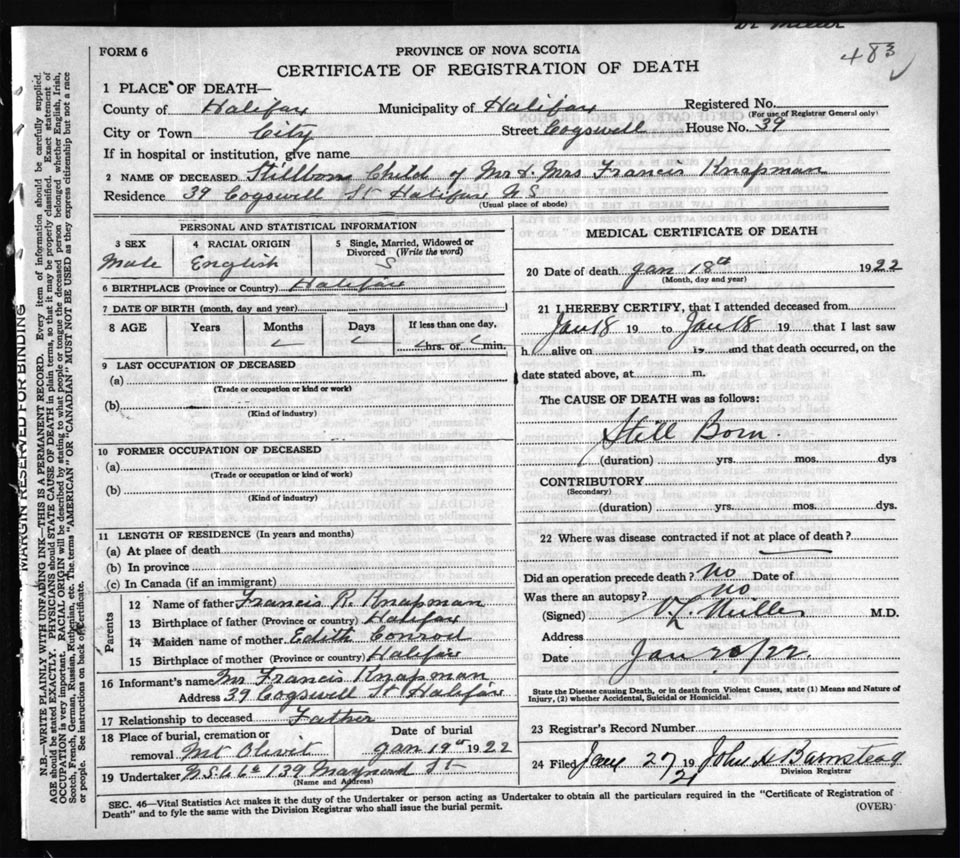 Dr Miller
FORM 6
PROVINCE OF NOVA SCOTIA
483
CERTIFICATE OF REGISTRATION OF DEATH
1 PLACE OF DEATH—
County of Halifax Municipality of Halifax Registered No.
(For use of Registrar General only)
City or Town City Street Cogswell House No. 39
If in hospital or institution, give name
2 NAME OF DECEASED Stillborn Child of Mr & Mrs Francis Knapman
Residence 39 Cogswell St Halifax N.S
(Usual place of abode)
PERSONAL AND STATISTICAL INFORMATION
3 SEX 4 RACIAL ORIGIN 5 Single, Married, Widowed or Divorced (Write the word)
Male English S
6 BIRTHPLACE (Province or Country) Halifax
7 DATE OF BIRTH (month, day and year)
8 AGE Years Months Days If less than one day,
hrs. or min.
9 LAST OCCUPATION OF DECEASED
(a)
(Trade or occupation or kind or work)
(b)
(Kind of industry)
10 FORMER OCCUPATION OF DECEASED
(a)
(Trade or occupation or kind of work)
(b)
(Kind of industry)
11 LENGTH OF RESIDENCE (In years and months)
(a) At place of death
(b) In province
(c) In Canada (if an immigrant)
Parents
12 Name of father Francis R. Knapman
13 Birthplace of father (Province or country) Halifax
14 Maiden name of mother Edith Conrod
15 Birthplace of mother (Province or country) Halifax
16 Informant's name Mr Francis Knapman
Address 39 Cogswell St Halifax
17 Relationship to deceased Father
18 Place of burial, cremation or removal Mt Olivit Date of burial Jan 19th 1922
19 Undertaker N.S.U Co 139 Maynard St
(Name and Address)
MEDICAL CERTIFICATE OF DEATH
20 Date of death Jan 18th 1922
(Month, day and year)
21 I HEREBY CERTIFY, that I attended deceased from
Jan 18 19 to Jan 18 19 that I last saw
h alive on 19 and that death occurred, on the
date stated above, at m.
The CAUSE OF DEATH was as follows:
Still Born.
(duration) yrs. mos. dys
CONTRIBUTORY
(Secondary)
(duration) yrs. mos. dys.
22 Where was disease contracted if not at place of death?
Did an operation precede death? No Date of
Was there an autopsy? no
(Signed) V L Miller M.D.
Address
Date Jan 20/22.
State the Disease causing Death, or in death from Violent Causes, state (1) Means and Nature of Injury, (2) whether Accidental, Suicidal or Homicidal.
23 Registrar's Record Number
24 Filed Jany 27 19 John H Barnstead
Division Registrar
SEC. 46—Vital Statistics Act makes it the duty of the Undertaker or person acting as Undertaker to obtain all the particulars required in the "Certificate of Registration of
Death" and to fyle the same with the Division Registrar who shall issue the burial permit.
(OVER)
MARGIN RESERVED FOR BINDING
N.B.—WRITE PLAINLY WITH UNFADING INK—THIS IS A PERMANENT RECORD. Every item of information should be carefully supplied.
AGE should be stated EXACTLY. PHYSICIANS should STATE CAUSE OF DEATH in plain terms, so that it may be properly classified. Exact statement of
OCCUPATION is very important. RACIAL ORIGIN will be described by stating to what people or tongue the deceased person belonged, whether English, Irish,
Scotch, French, German, Russian, Ruthenian, etc. The terms "AMERICAN" or "CANADIAN" MUST NOT BE USED as they express citizenship but not a race
or people. See instructions on back of Certificate.